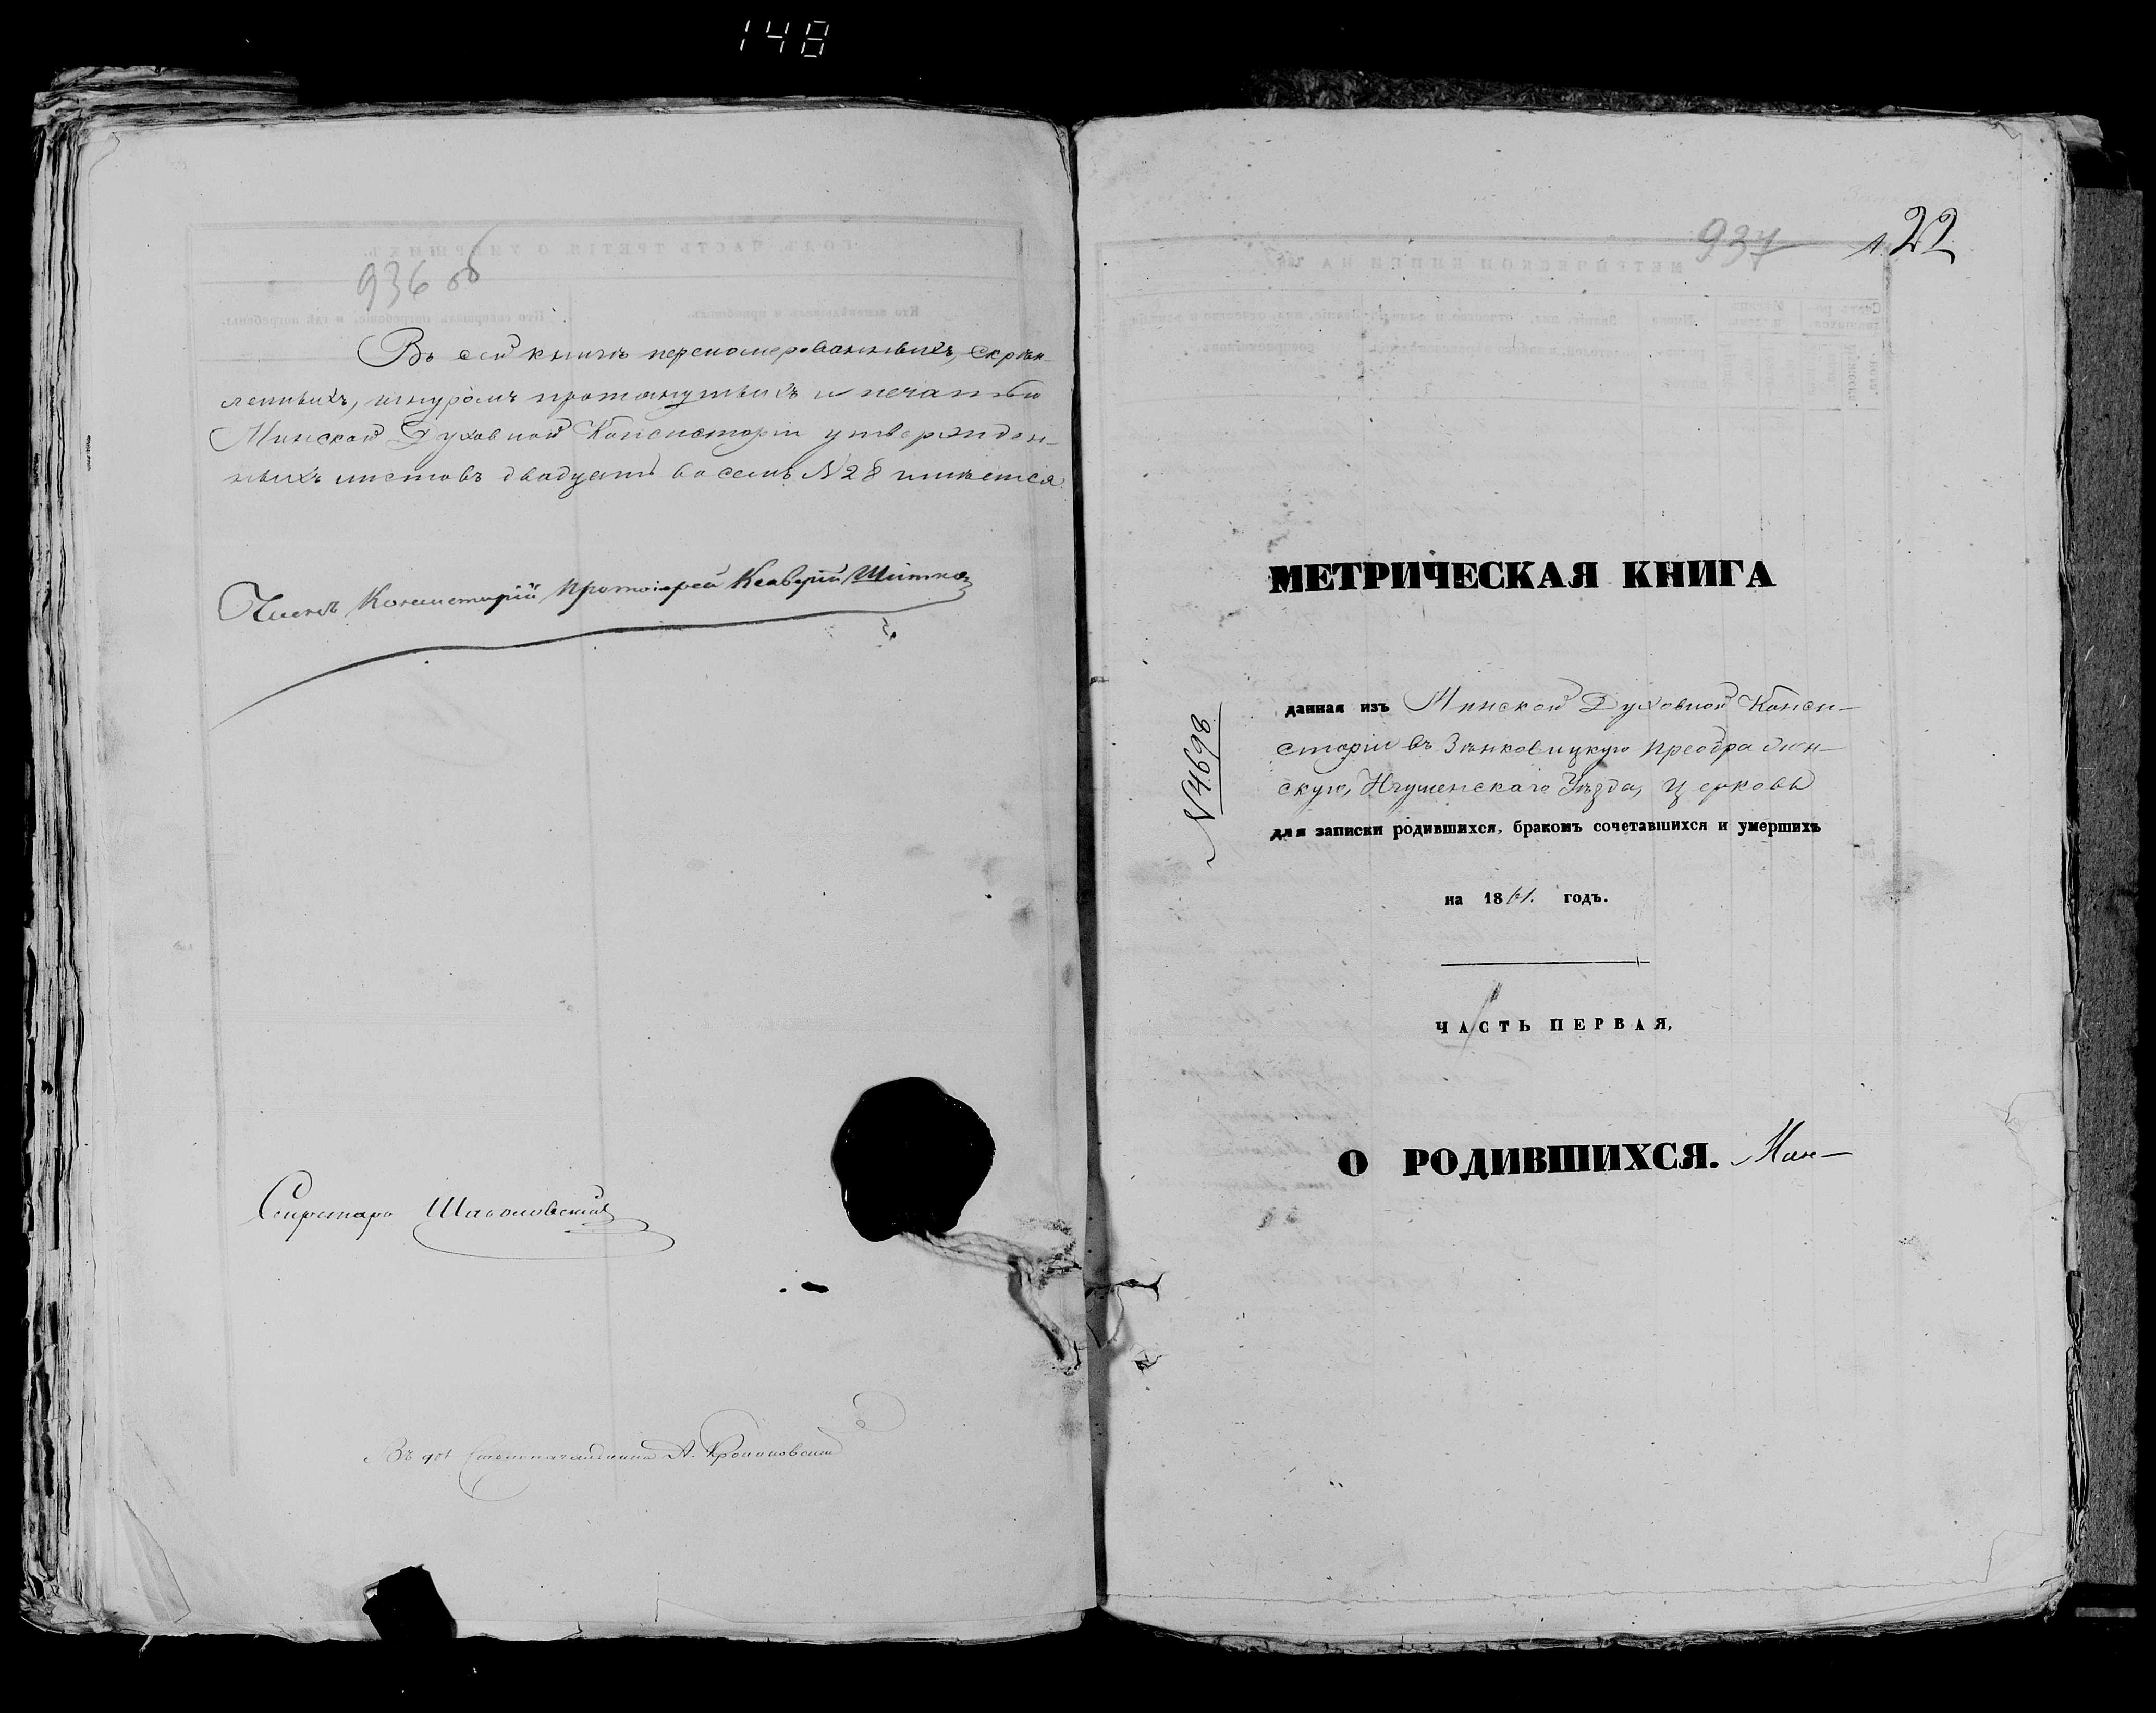 148
936 об
Въ сей книгѣ переномерованныхъ, скрѣп-
ленныхъ, шнуромъ протянутыхъ и печатью
Минской Духовной Консисторіи утвержден-
ныхъ листовъ двадцать восемь №28 имѣется
Членъ Консисторіи Протоіерей Ксаверій
Секретарь
Столоначальника А.
937
22
МЕТРИЧЕСКАЯ КНИГА
№4698
данная изъ Минской Духовной Конси-
сторіи въ Зѣнковицкую Преображен-
скую, Игуменскаго Уѣзда, Церковь
для записки родившихся, бракомъ сочетавшихся и умершихъ
на 1861. годъ.
ЧАСТЬ ПЕРВАЯ,
О РОДИВШИХСЯ. Мин-